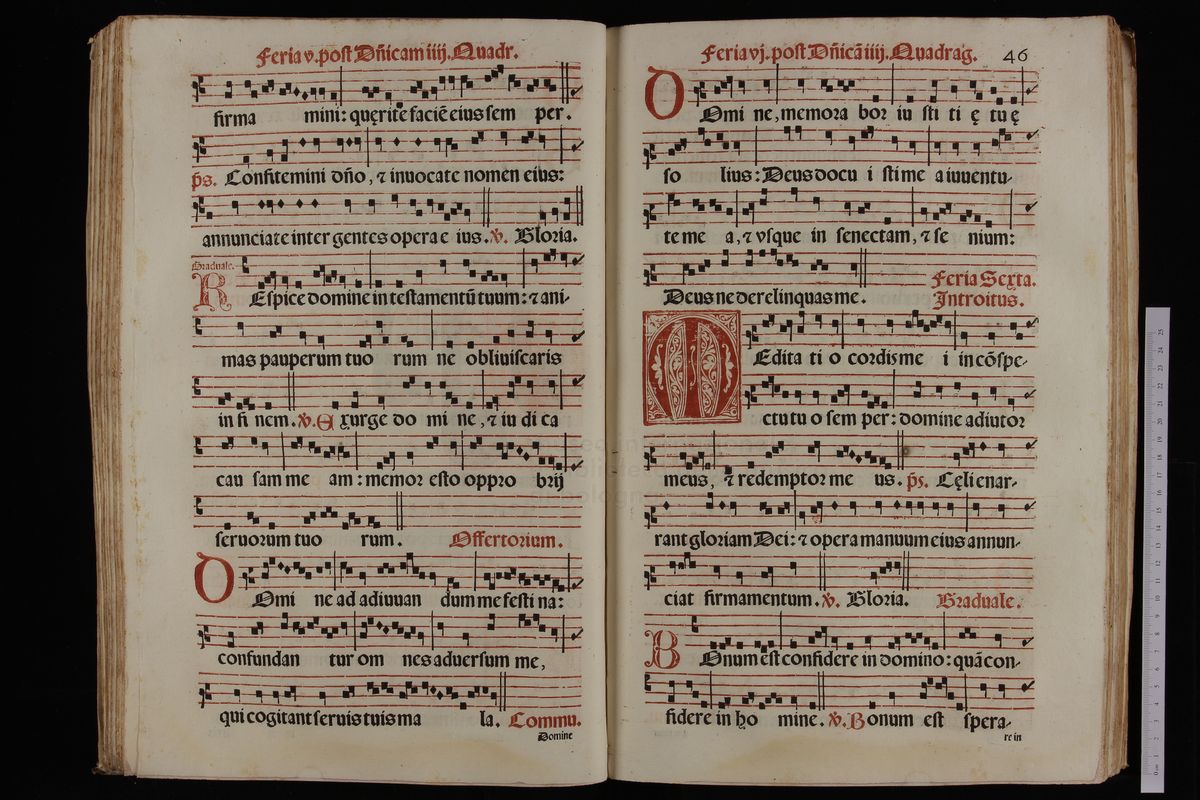 Feria v. post Dñicam iiij. Quadr.
firma mini: quęrite faciē eius sem per.
p̃s. Confitemini dño, ⁊ inuocate nomen eius:
annunciate inter gentes opera e ius. ℣. Gloria.
Graduale.
REspice domine in testamentũ tuum: ⁊ ani-
mas pauperum tuo rum ne obliuiscaris
in fi nem. ℣. Exurge do mi ne, ⁊ iu di ca
cau sam me am: memor esto oppro brij
seruorum tuo rum. Offertorium.
DOmi ne ad adiuuan dum me festi na:
confundan tur om nes aduersum me,
qui cogitant seruis tuis ma la. Commu.
Domine
Feria vj. post Dñicā iiij. Quadrag. 46
DOmi ne, memora bor iu sti ti ę tu ę
so lius: Deus docu i sti me a iuuentu-
te me a, ⁊ vsque in senectam, ⁊ se nium:
Deus ne derelinquas me. Feria Sexta.
Introitus.
MEdita ti o cordis me i in cõspe-
ctu tu o sem per: domine adiutor
meus, ⁊ redemptor me us. p̃s. Cęli enar-
rant gloriam Dei: ⁊ opera manuum eius annun-
ciat firmamentum. ℣. Gloria. Graduale.
BOnum est confidere in domino: quā con-
fidere in ho mine. ℣. Bonum est spera-
re in